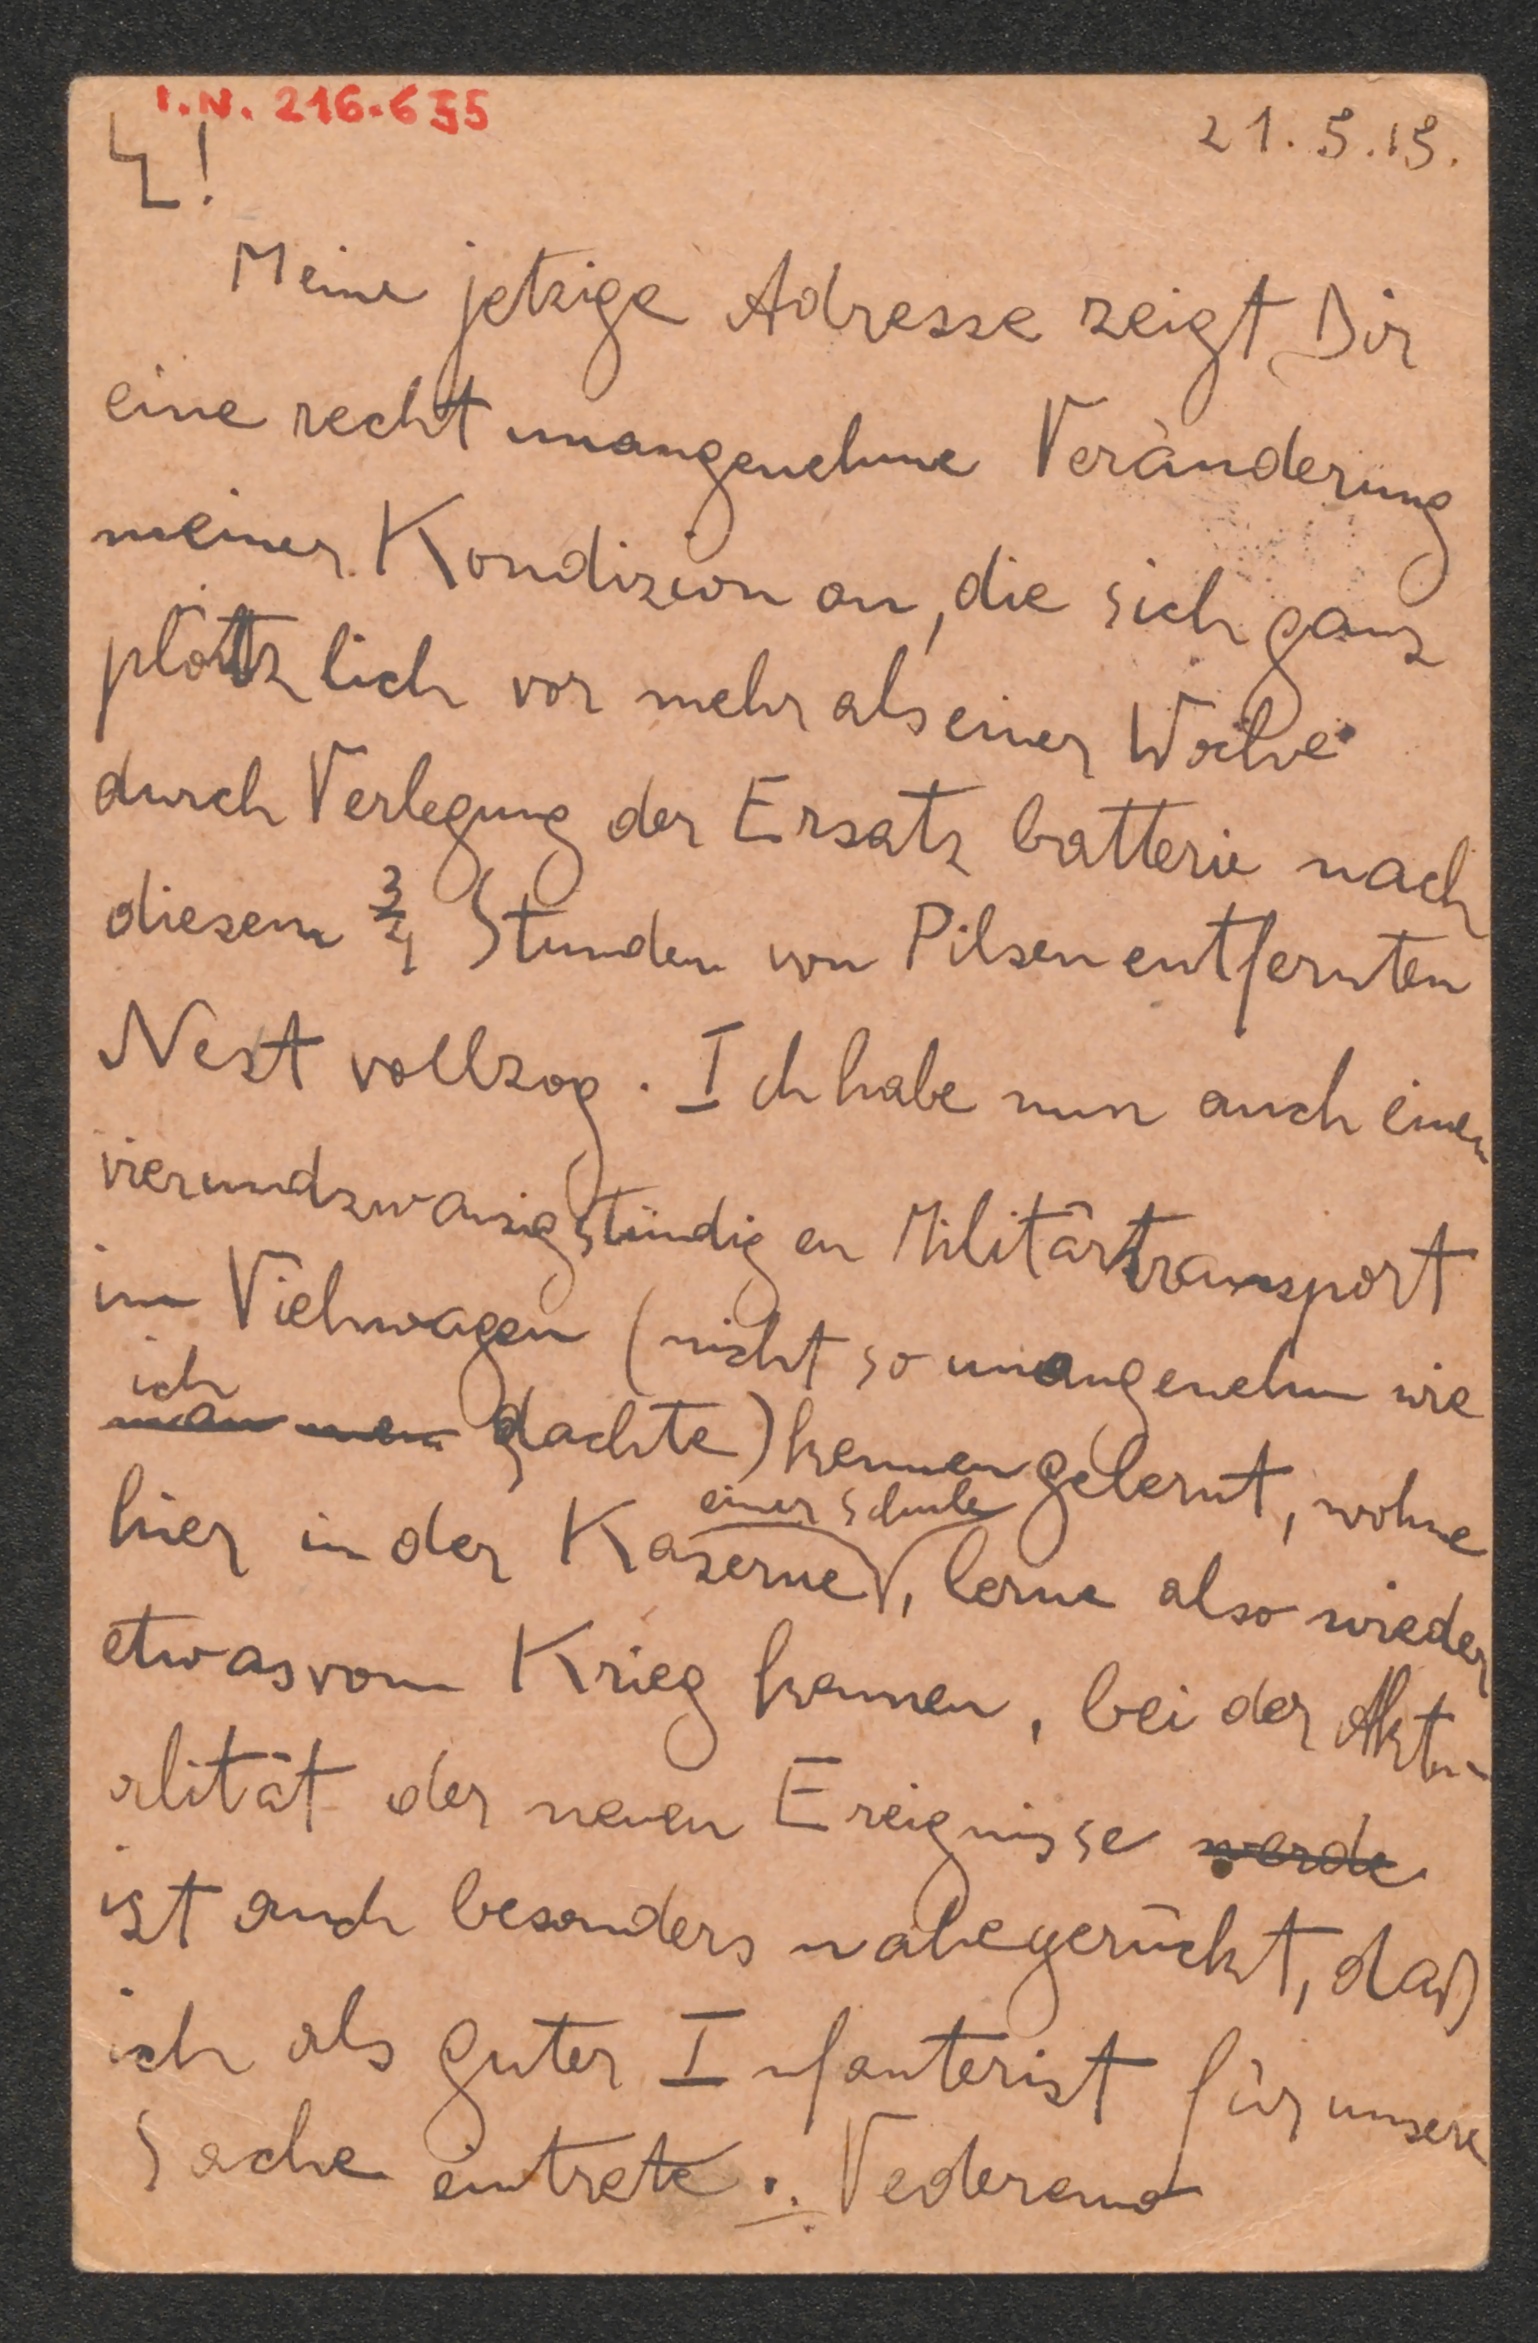 I.N. 216.655
21.5.15.
L!
Meine jetzige Adresse zeigt Dir
eine recht unangenehme Veränderung
meiner Kondizion an, die sich ganz
plötzlich vor mehr als einer Woche
durch Verlegung der Ersatzbatterie nach
diesem ¾ Stunden von Pilsen entfernten
Nest vollzog. Ich habe nun auch einen
vierundzwanzigstündigen Militärtransport
im Viehwagen (nicht so unangenehm wie
ich
man dachte) kennen gelernt, wohne
einer Schule
hier in der Kaserne, lerne also wieder
etwas vom Krieg kennen, bei der Aktu-
alität der neuen Ereignisse werde
ist auch besonders nahegerückt, daß
ich als guter Infanterist für unsere
Sache eintrete. Vederemo